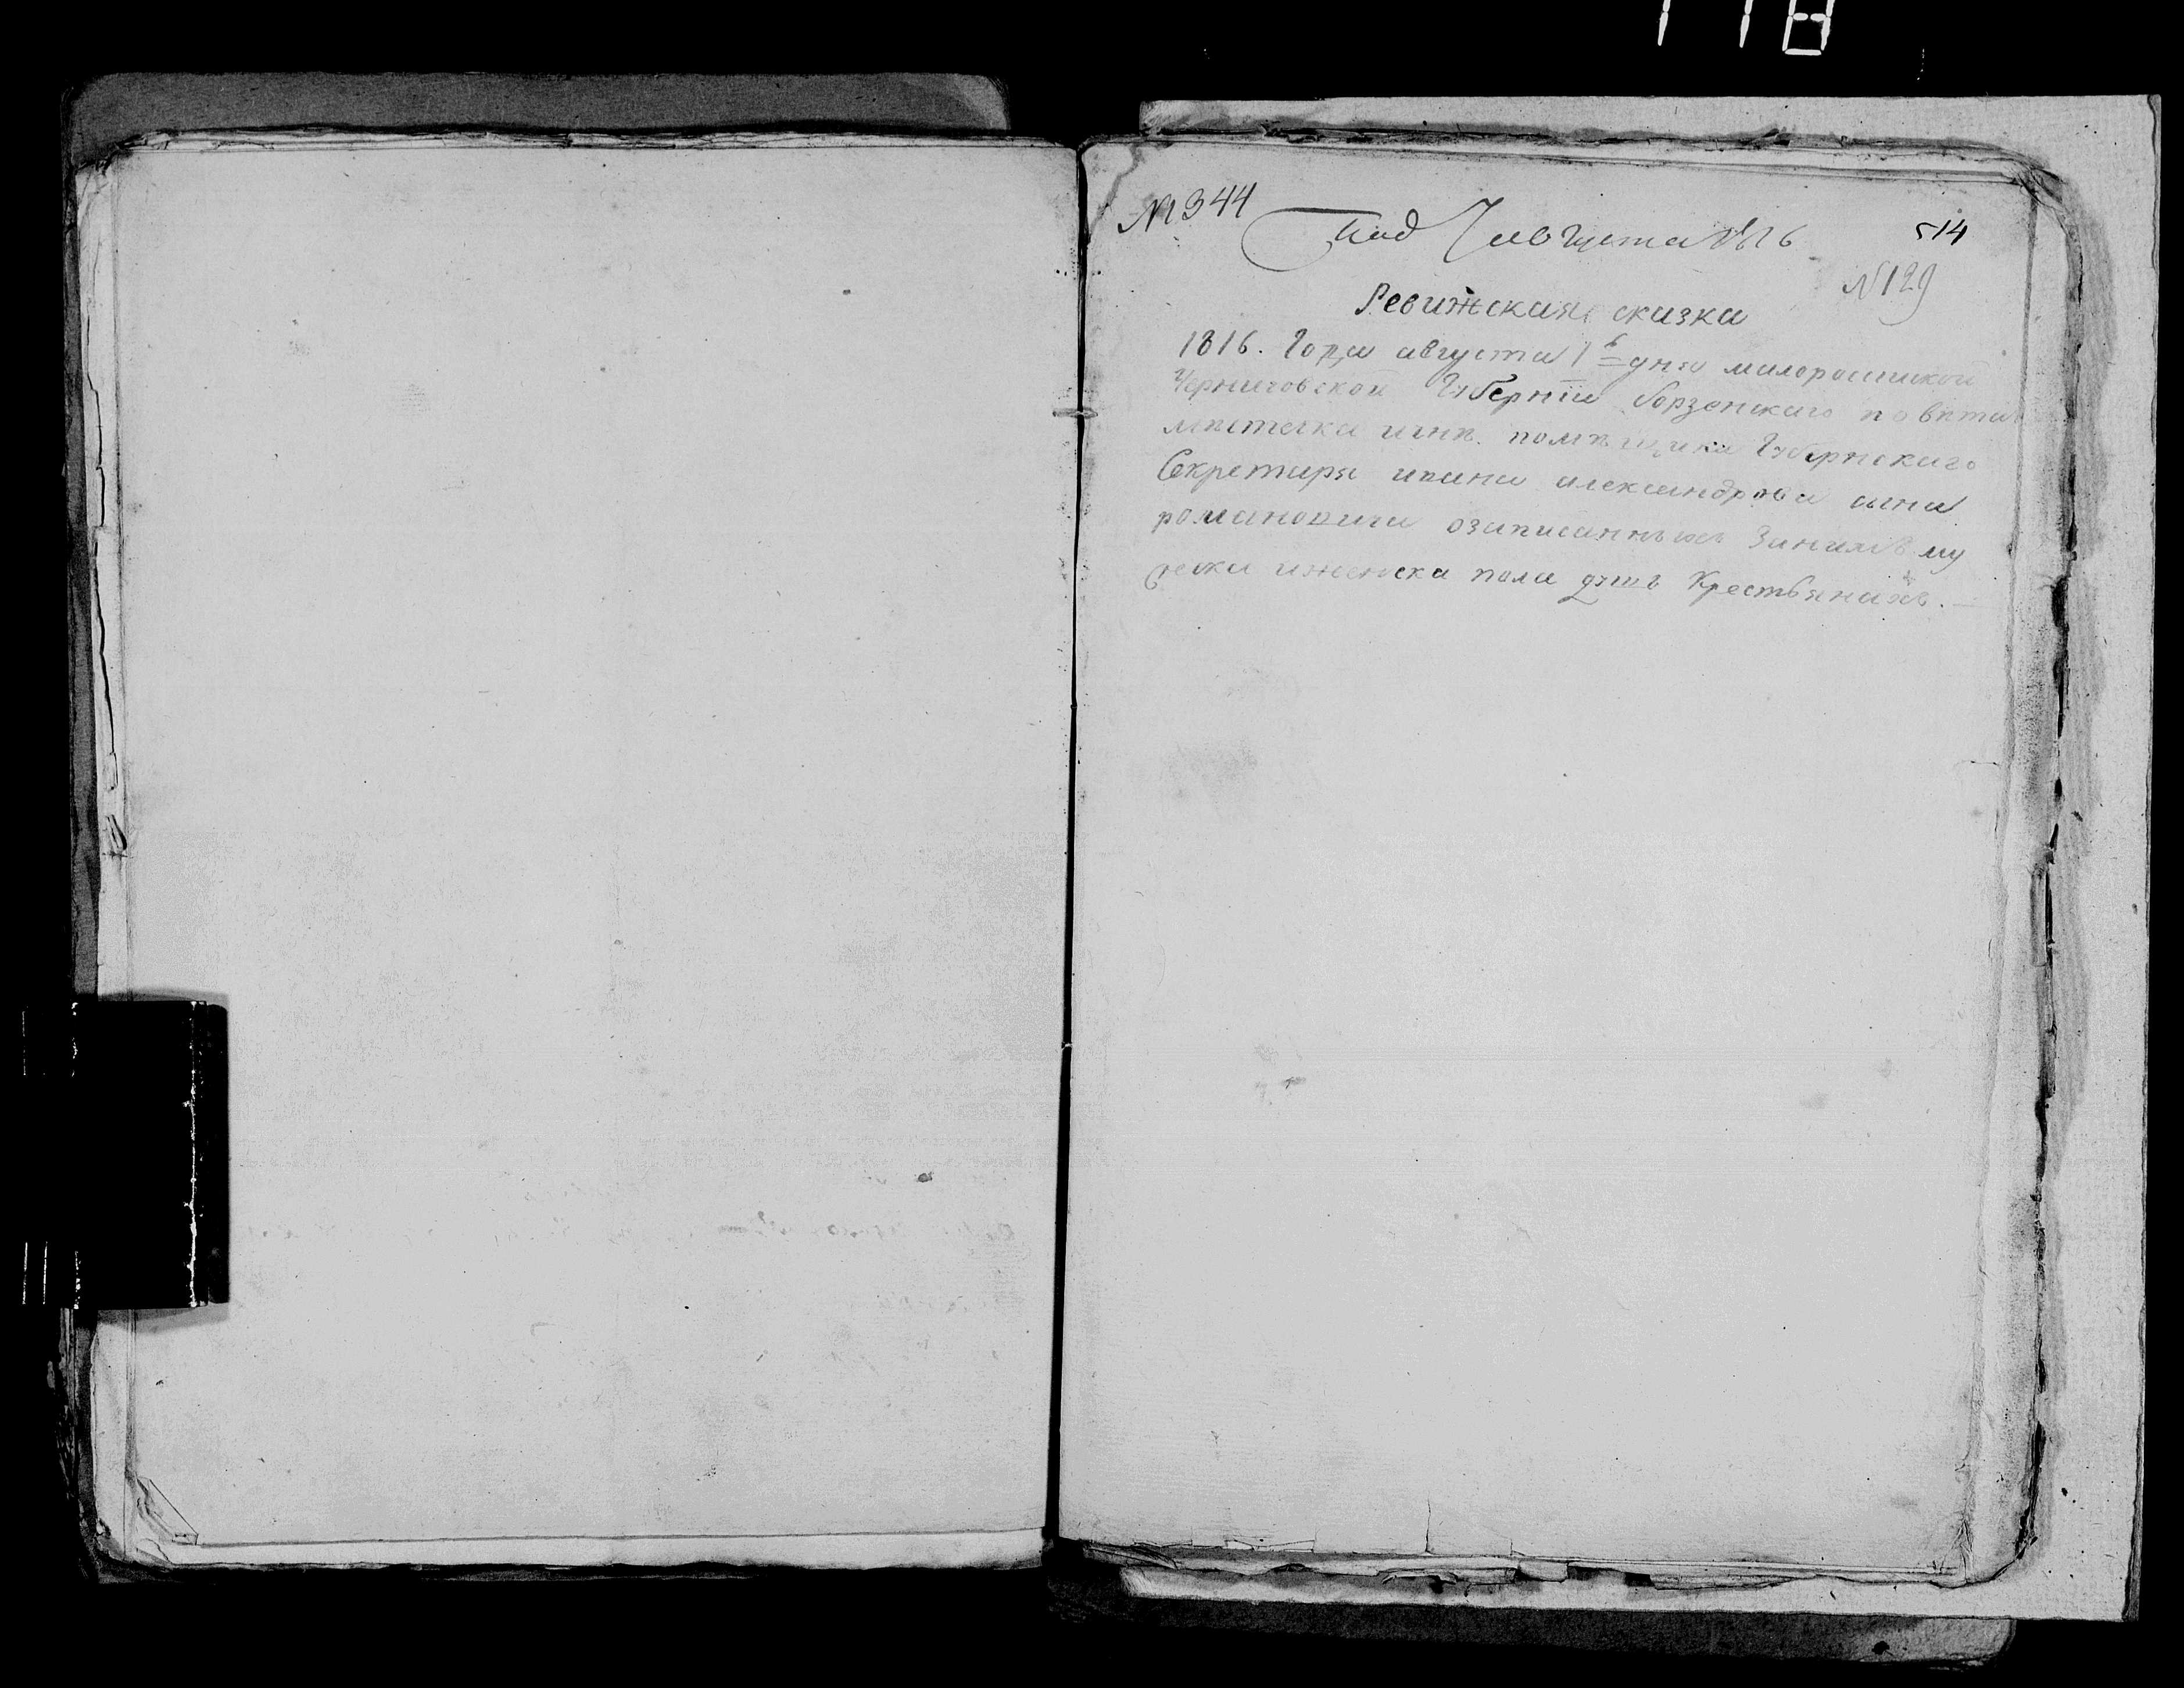 118
№ 344
Под 7 августа 1816
514
№ 129
Ревижская сказка
1816. Года августа 1 дня малоросийской
Черниговской Губернїи борзенского повѣта
мѣстечка ичнѣ. помѣщика Губернского
Секретаря ивана александрова сына
романовича озаписанныхъ Занимъ му
жска иженска пола душъ Крестьянахъ.